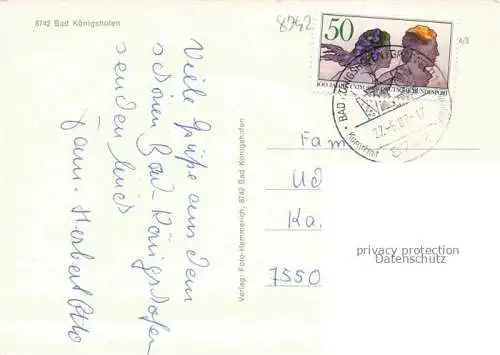 8742 Bad Königshofen
8742
50
4/3
DEUTSCHE BUNDESPOST
BAD KÖNIGSHOFEN
27.-5.83-17
8742
Viele Grüße aus dem
schönen Bad-Königshofen
senden Euch
Fam. Herbert Otto
Verlag: Foto-Hemmerich, 8742 Bad Königshofen
Fam
Ud
Ka.
7550
privacy protection
Datenschutz